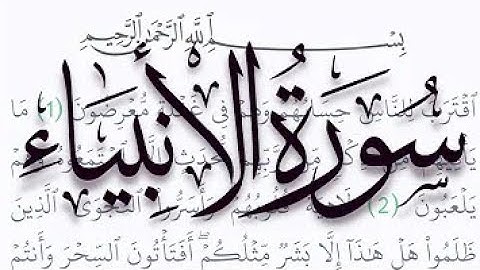 بِسْمِ ٱللَّهِ ٱلرَّحْمَٰنِ ٱلرَّحِيمِ
سُورَةُ الأَنبِيَاءِ
ٱقْتَرَبَ لِلنَّاسِ حِسَابُهُمْ وَهُمْ فِى غَفْلَةٍ مُّعْرِضُونَ (1) مَا
يَأْتِيهِم مِّن ذِكْرٍ مِّن رَّبِّهِم مُّحْدَثٍ إِلَّا ٱسْتَمَعُوهُ وَهُمْ
يَلْعَبُونَ (2) لَاهِيَةً قُلُوبُهُمْ وَأَسَرُّوا۟ ٱلنَّجْوَى ٱلَّذِينَ
ظَلَمُوا۟ هَلْ هَٰذَآ إِلَّا بَشَرٌ مِّثْلُكُمْ ۖ أَفَتَأْتُونَ ٱلسِّحْرَ وَأَنتُمْ